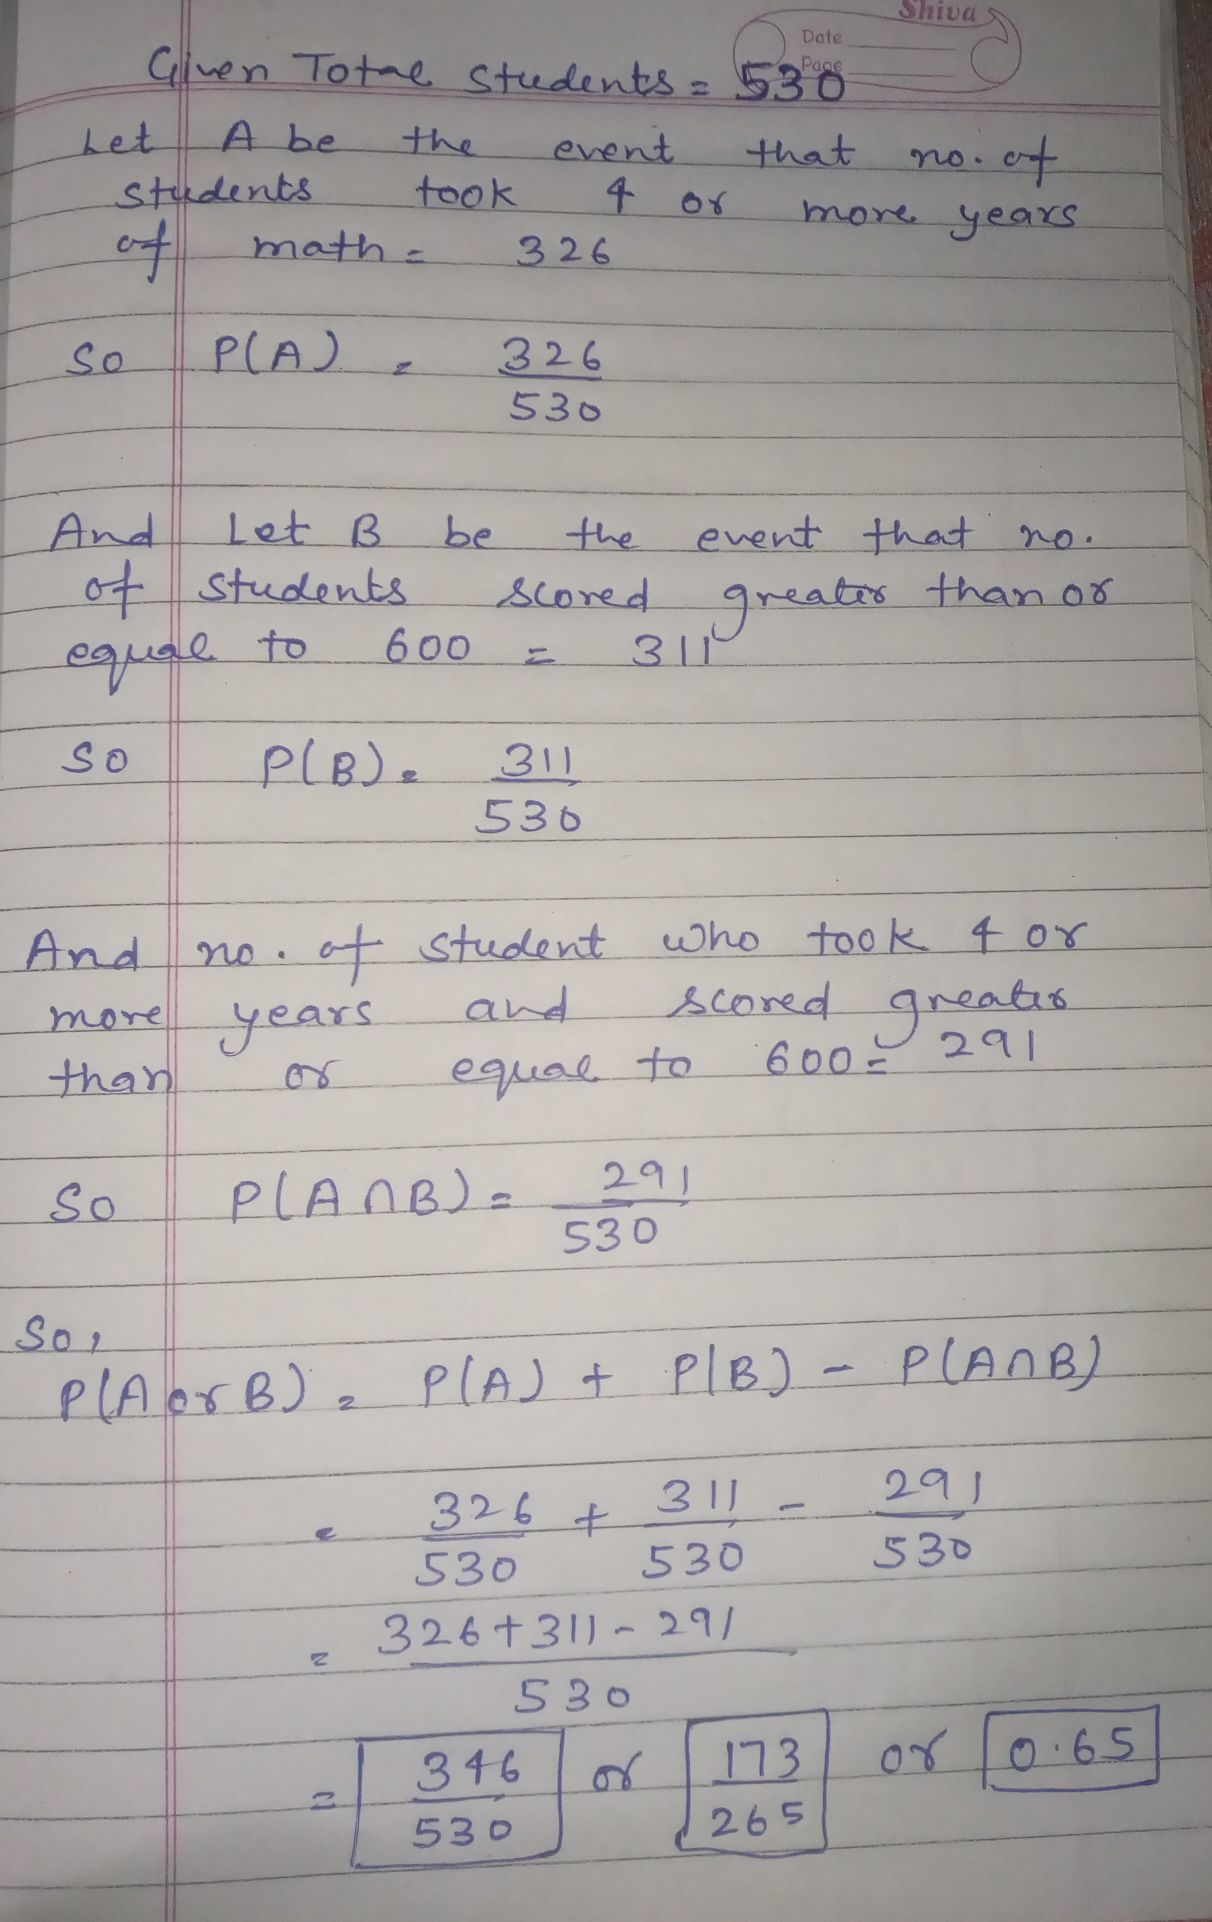 Shiva
Date
Page
Given Total students = 530
Let A be the event that no. of
students took 4 or more years
of math = 326
So P(A) = 326
530
And Let B be the event that no.
of students scored greater than or
equal to 600 = 311
So P(B) = 311
530
And no. of student who took 4 or
more years and scored greater
than or equal to 600 = 291
So P(A∩B) = 291
530
So,
P(A or B) = P(A) + P(B) - P(A∩B)
= 326 + 311 - 291
530 530 530
= 326+311-291
530
= 346 or 173 or 0.65
530 265